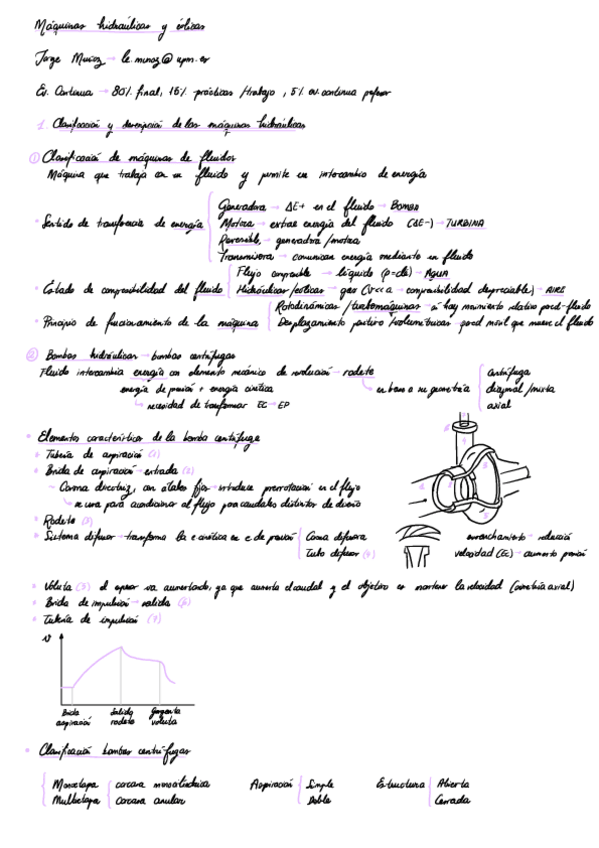 Máquinas hidráulicas y eólicas
Jorge Muñoz → le.munoz@upm.es
Ev. Continua → 80% final, 15% prácticas/trabajo, 5% ev. continua profesor
1. Clasificación y descripción de las máquinas hidráulicas
① Clasificación de máquinas de fluidos
Máquina que trabaja con un fluido y permite un intercambio de energía
• Sentido de transferencia de energía
Generadora → ΔE+ en el fluido → BOMBA
Motora → extrae energía del fluido (ΔE-) → TURBINA
Reversible → generadora/motora
Transmisora → comunican energía mediante un fluido
• Estado de compresibilidad del fluido
Flujo compresible → líquido (ρ=cte) → AGUA
Hidráulicas/eólicas → gas (v<<a → compresibilidad despreciable) → AIRE
• Principio de funcionamiento de la máquina
Rotodinámicas/turbomáquinas → si hay movimiento relativo pared-fluido
Desplazamiento positivo/volumétricas → pared móvil que mueve el fluido
② Bombas hidráulicas → bombas centrífugas
Fluido intercambia energía con elemento mecánico de revolución → rodete
energía de presión + energía cinética
↳ necesidad de transformar EC → EP
↳ en base a su geometría
centrífuga
diagonal/mixta
axial
• Elementos característicos de la bomba centrífuga
• Tubería de aspiración (1)
• Brida de aspiración → entrada (2)
- Corona directriz, con álabes fijos → introduce prerrotación en el flujo
↳ se usa para acondicionar el flujo para caudales distintos de diseño
• Rodete (3)
• Sistema difusor → transforma la e cinética en e de presión
Corona difusora
Tubo difusor (4)
ensanchamiento → reducción
velocidad (Ec) → aumento presión
• Voluta (5) el espesor va aumentando, ya que aumenta el caudal y el objetivo es mantener la velocidad (simetría axial)
• Brida de impulsión → salida (6)
• Tubería de impulsión (7)
v
Brida aspiración
Salida rodete
Garganta voluta
• Clasificación bombas centrífugas
Monoetapa
Multietapa
carcasa monocilíndrica
Carcasa anular
Aspiración
Simple
Doble
Estructura
Abierta
Cerrada